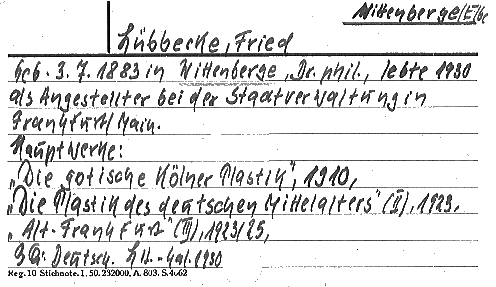 Wittenberge/Elbe
Lübbecke, Fried
Geb. 3.7.1883 in Wittenberge, Dr. phil., lebte 1930
als Angestellter bei der Staatverwaltung in
Frankfurt/Main.
Hauptwerke:
„Die gotische Kölner Plastik", 1910,
„Die Plastik des deutschen Mittelalters" (II), 1923,
„Alt-Frankfurt" (III), 1923/25,
Deutsch. Lit.-Kal. 1930
Reg. 10 Stichnote. 1, 50. 232000. A. 803. S. 4.62